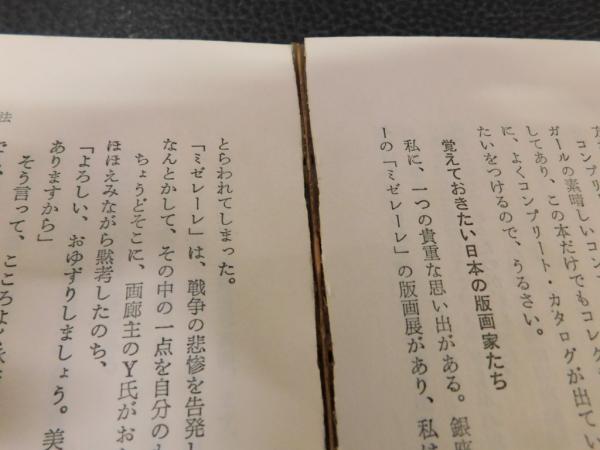 コンプリ
ガールの素晴しいコンプ
してあり、この本だけでもコレク
に、よくコンプリート・カタログが出てい
たいをつけるので、うるさい。
覚えておきたい日本の版画家たち
私に、一つの貴重な思い出がある。銀座
ーの「ミゼレーレ」の版画展があり、私は
とらわれてしまった。
「ミゼレーレ」は、戦争の悲惨を告発し
なんとかして、その中の一点を自分の
ちょうどそこに、画廊主のY氏がお
ほほえみながら黙考したのち、
「よろしい、おゆずりしましょう。美
ありますから」
そう言って、こころよく
法